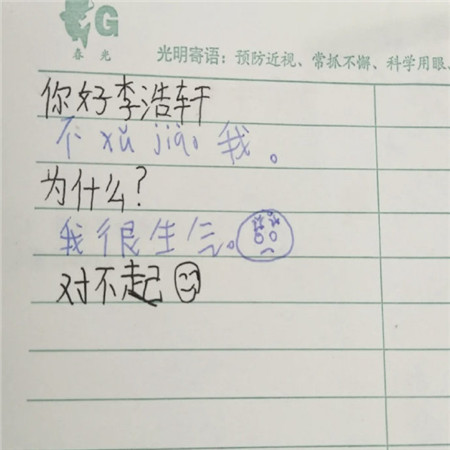 G
春光
光明寄语：预防近视、常抓不懈、科学用眼、
你好李浩轩
不 xǔ jiào 我。
为什么？
我很生气。
对不起